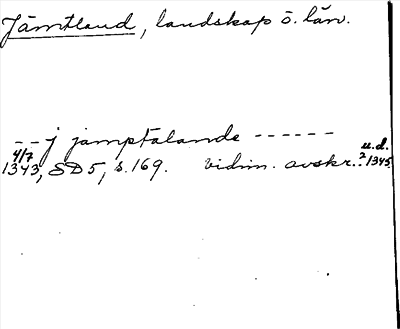 Jämtland, landskap o. län.
-- j jamptalande ------
4/7 u.d.
1343, SD5, s. 169. vidim. avskr. ? 1345